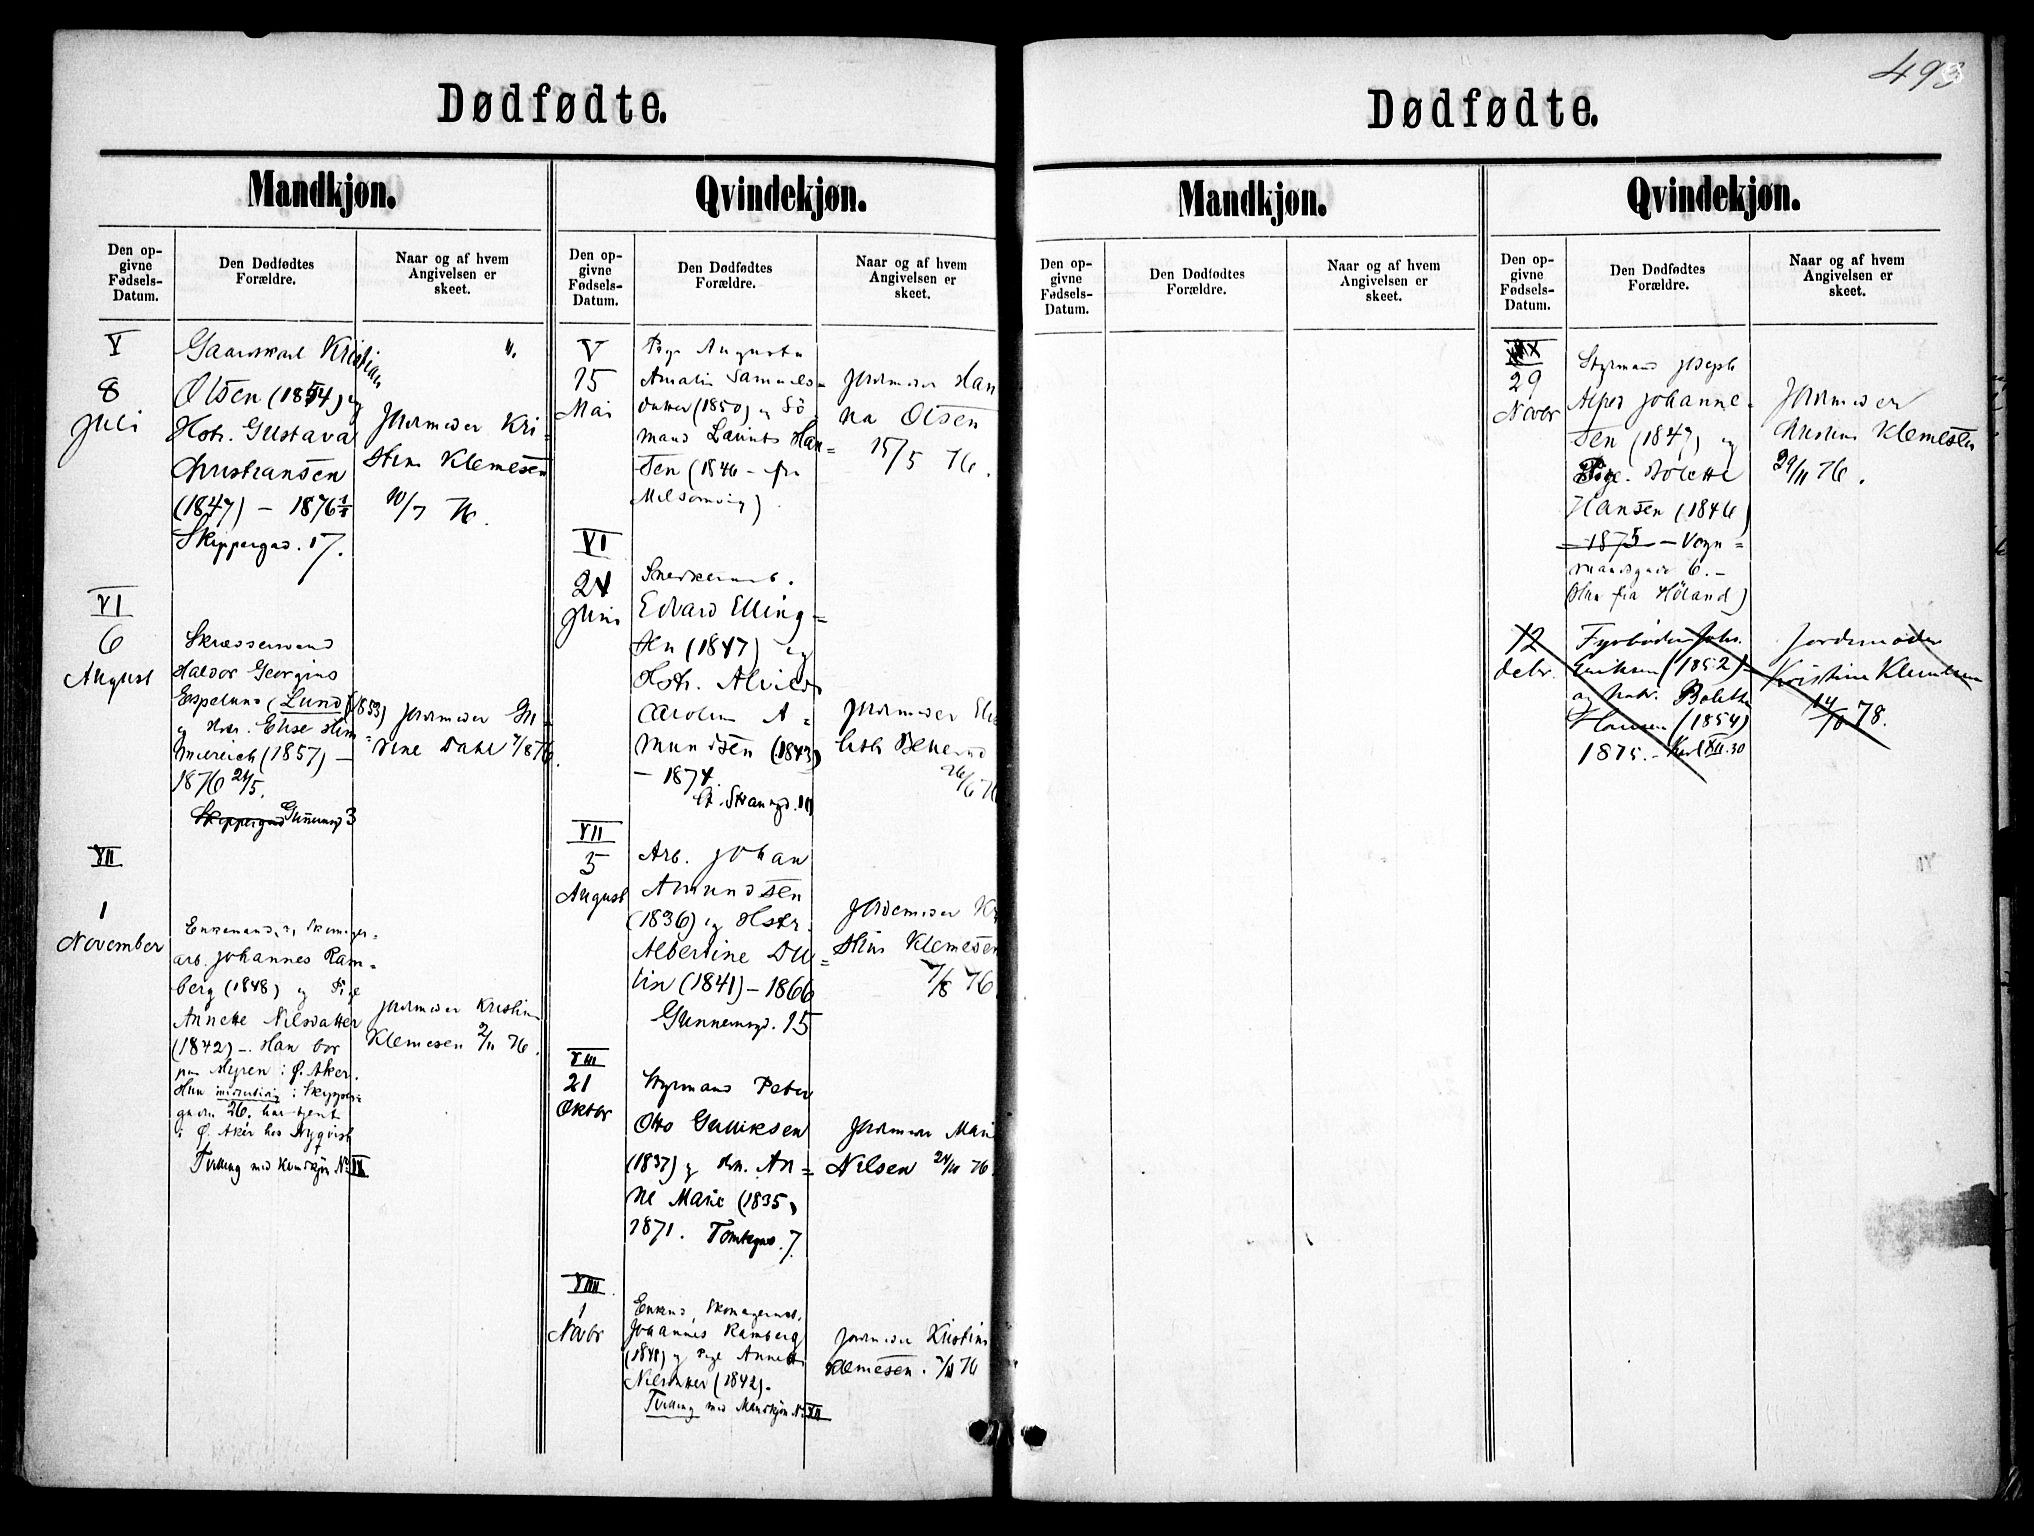 Dødfødte.
Mandkjøn.
Qvindekjøn.
Den op-
givne
Fødsels-
Datum.
Den Dødfødtes
Forældre.
Naar og af hvem
Angivelsen er
skeet.
Den op-
givne
Fødsels-
Datum.
Den Dødfødtes
Forældre.
Naar og af hvem
Angivelsen er
skeet.
V
8
Juli
Gaardskarl Kristian
Olsen (1854) og
Hstr. Gustava
Christiansen
(1847) – 1876
Skippergad. 17.
".
Jordmoder Kri-
stine Klemesen
10/7 76.
VI
6
August
Skræddersvend
Haldor Georgius
Espelund (Lund) (1853)
og Hstr. Elise Him-
merich (1857) –
1876 24/5.
Skippergad Gunnersgd 3
Jordmoder
Dahl 7/8 76.
VII
1
November
Enkemand, Skomager-
arb. Johannes Ram-
berg (1848) og Pige
Annette Nilsdatter
(1842) –. Han bor
paa Myren i Ø. Aker.
Hun midlertidig i Skipper-
gaden 26. har tjent
i Ø. Aker hos Nyqvist
Tvilling med Kvindkjøn No IX
Jordmoder Kristine
Klemesen 2/11 76.
V
15
Mai
Pige Augusta
Amalie Samuels-
datter (1850) og Sø
mand Laurits Han-
sen (1846 – fra
Melsomvig)
Jordmoder Han
na Olsen
15/5 76.
VI
24
Juni
Snedkerarb.
Edvard Elling-
sen (1847) og
Hstr. Alvilde
Caroline A-
mundsen (1843)
– 1874.
St. Strandgd. 10
Jordmoder Elisa
beth
26/6 76
VII
5
August
Arb. Johan
Amundsen
(1836) og Hstr.
Albertine Du-
lin (1841) – 1866
Gunnersgd. 15
Jordemoder Kri
stine Klemesen
7/8 76.
VIII
21
Oktbr
Styrmand Peter
Otto Gulliksen
(1837) og Hstr. An-
ne Marie (1835)
1871. Tomtegad. 7.
Jordmoder Marie
Nilsen 24/10 76.
VIIII
1
Novbr
Enkemd, Skomagerarb.
Johannes Ramberg
(1848) og Pige Annette
Nilsdatter (1842).
Tvilling med Mandkjøn No VII
Jordmoder Kristine
Klemesen. 2/11 76
493
Dødfødte.
Mandkjøn.
Qvindekjøn.
Den op-
givne
Fødsels-
Datum.
Den Dødfødtes
Forældre.
Naar og af hvem
Angivelsen er
skeet.
Den op-
givne
Fødsels-
Datum.
Den Dødfødtes
Forældre.
Naar og af hvem
Angivelsen er
skeet.
29
Novbr
Styrmand Joseph
Alfred Johanne-
sen (1847) og
Pige. Bolette
Hansen (1846)
– 1875 – Vogn-
mandsgade 6. –
(Hun fra Høland)
Jordmoder
Kristine Klemesen
29/11 76.
12
debr.
Fyrbøder Johs.
Eriksen (1852)
og hstr. Bolette
Hansen (1854)
1875. – Karl XII. 30
Jordemoder
Kristine Klemesen
78.